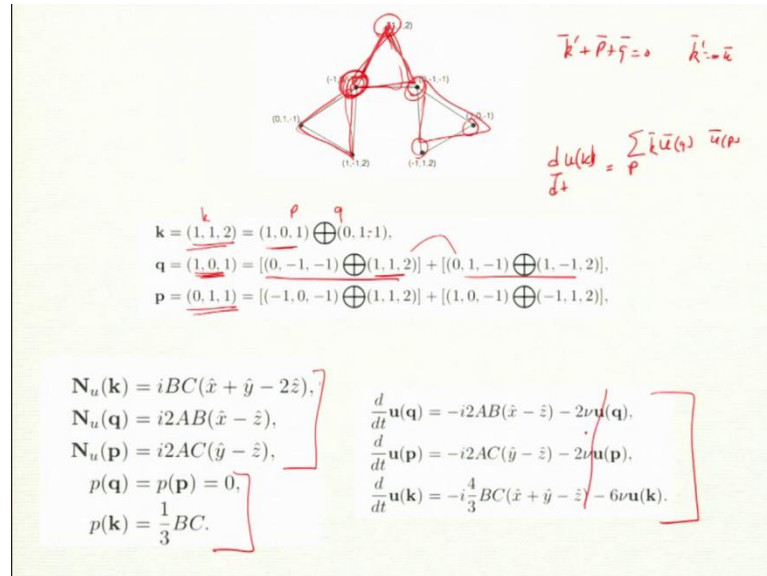 ,2)
k̄′ + p̄ + q̄ = 0   k̄′ = -k̄
(-1,
, -1, -1)
(0, 1, -1)
, 0, -1)
(1, -1, 2)
(-1, 1, 2)
d u(k) / dt = ∑ p k̄ ū(q) ū(p)
k p q
k = (1, 1, 2) = (1, 0, 1) ⨁ (0, 1, 1),
q = (1, 0, 1) = [(0, −1, −1) ⨁ (1, 1, 2)] + [(0, 1, −1) ⨁ (1, −1, 2)],
p = (0, 1, 1) = [(−1, 0, −1) ⨁ (1, 1, 2)] + [(1, 0, −1) ⨁ (−1, 1, 2)],
N_u(k) = iBC(x̂ + ŷ − 2ẑ),
N_u(q) = i2AB(x̂ − ẑ),
N_u(p) = i2AC(ŷ − ẑ),
p(q) = p(p) = 0,
p(k) = 1/3 BC.
d/dt u(q) = −i2AB(x̂ − ẑ) − 2νu(q),
d/dt u(p) = −i2AC(ŷ − ẑ) − 2νu(p),
d/dt u(k) = −i 4/3 BC(x̂ + ŷ − ẑ) − 6νu(k).